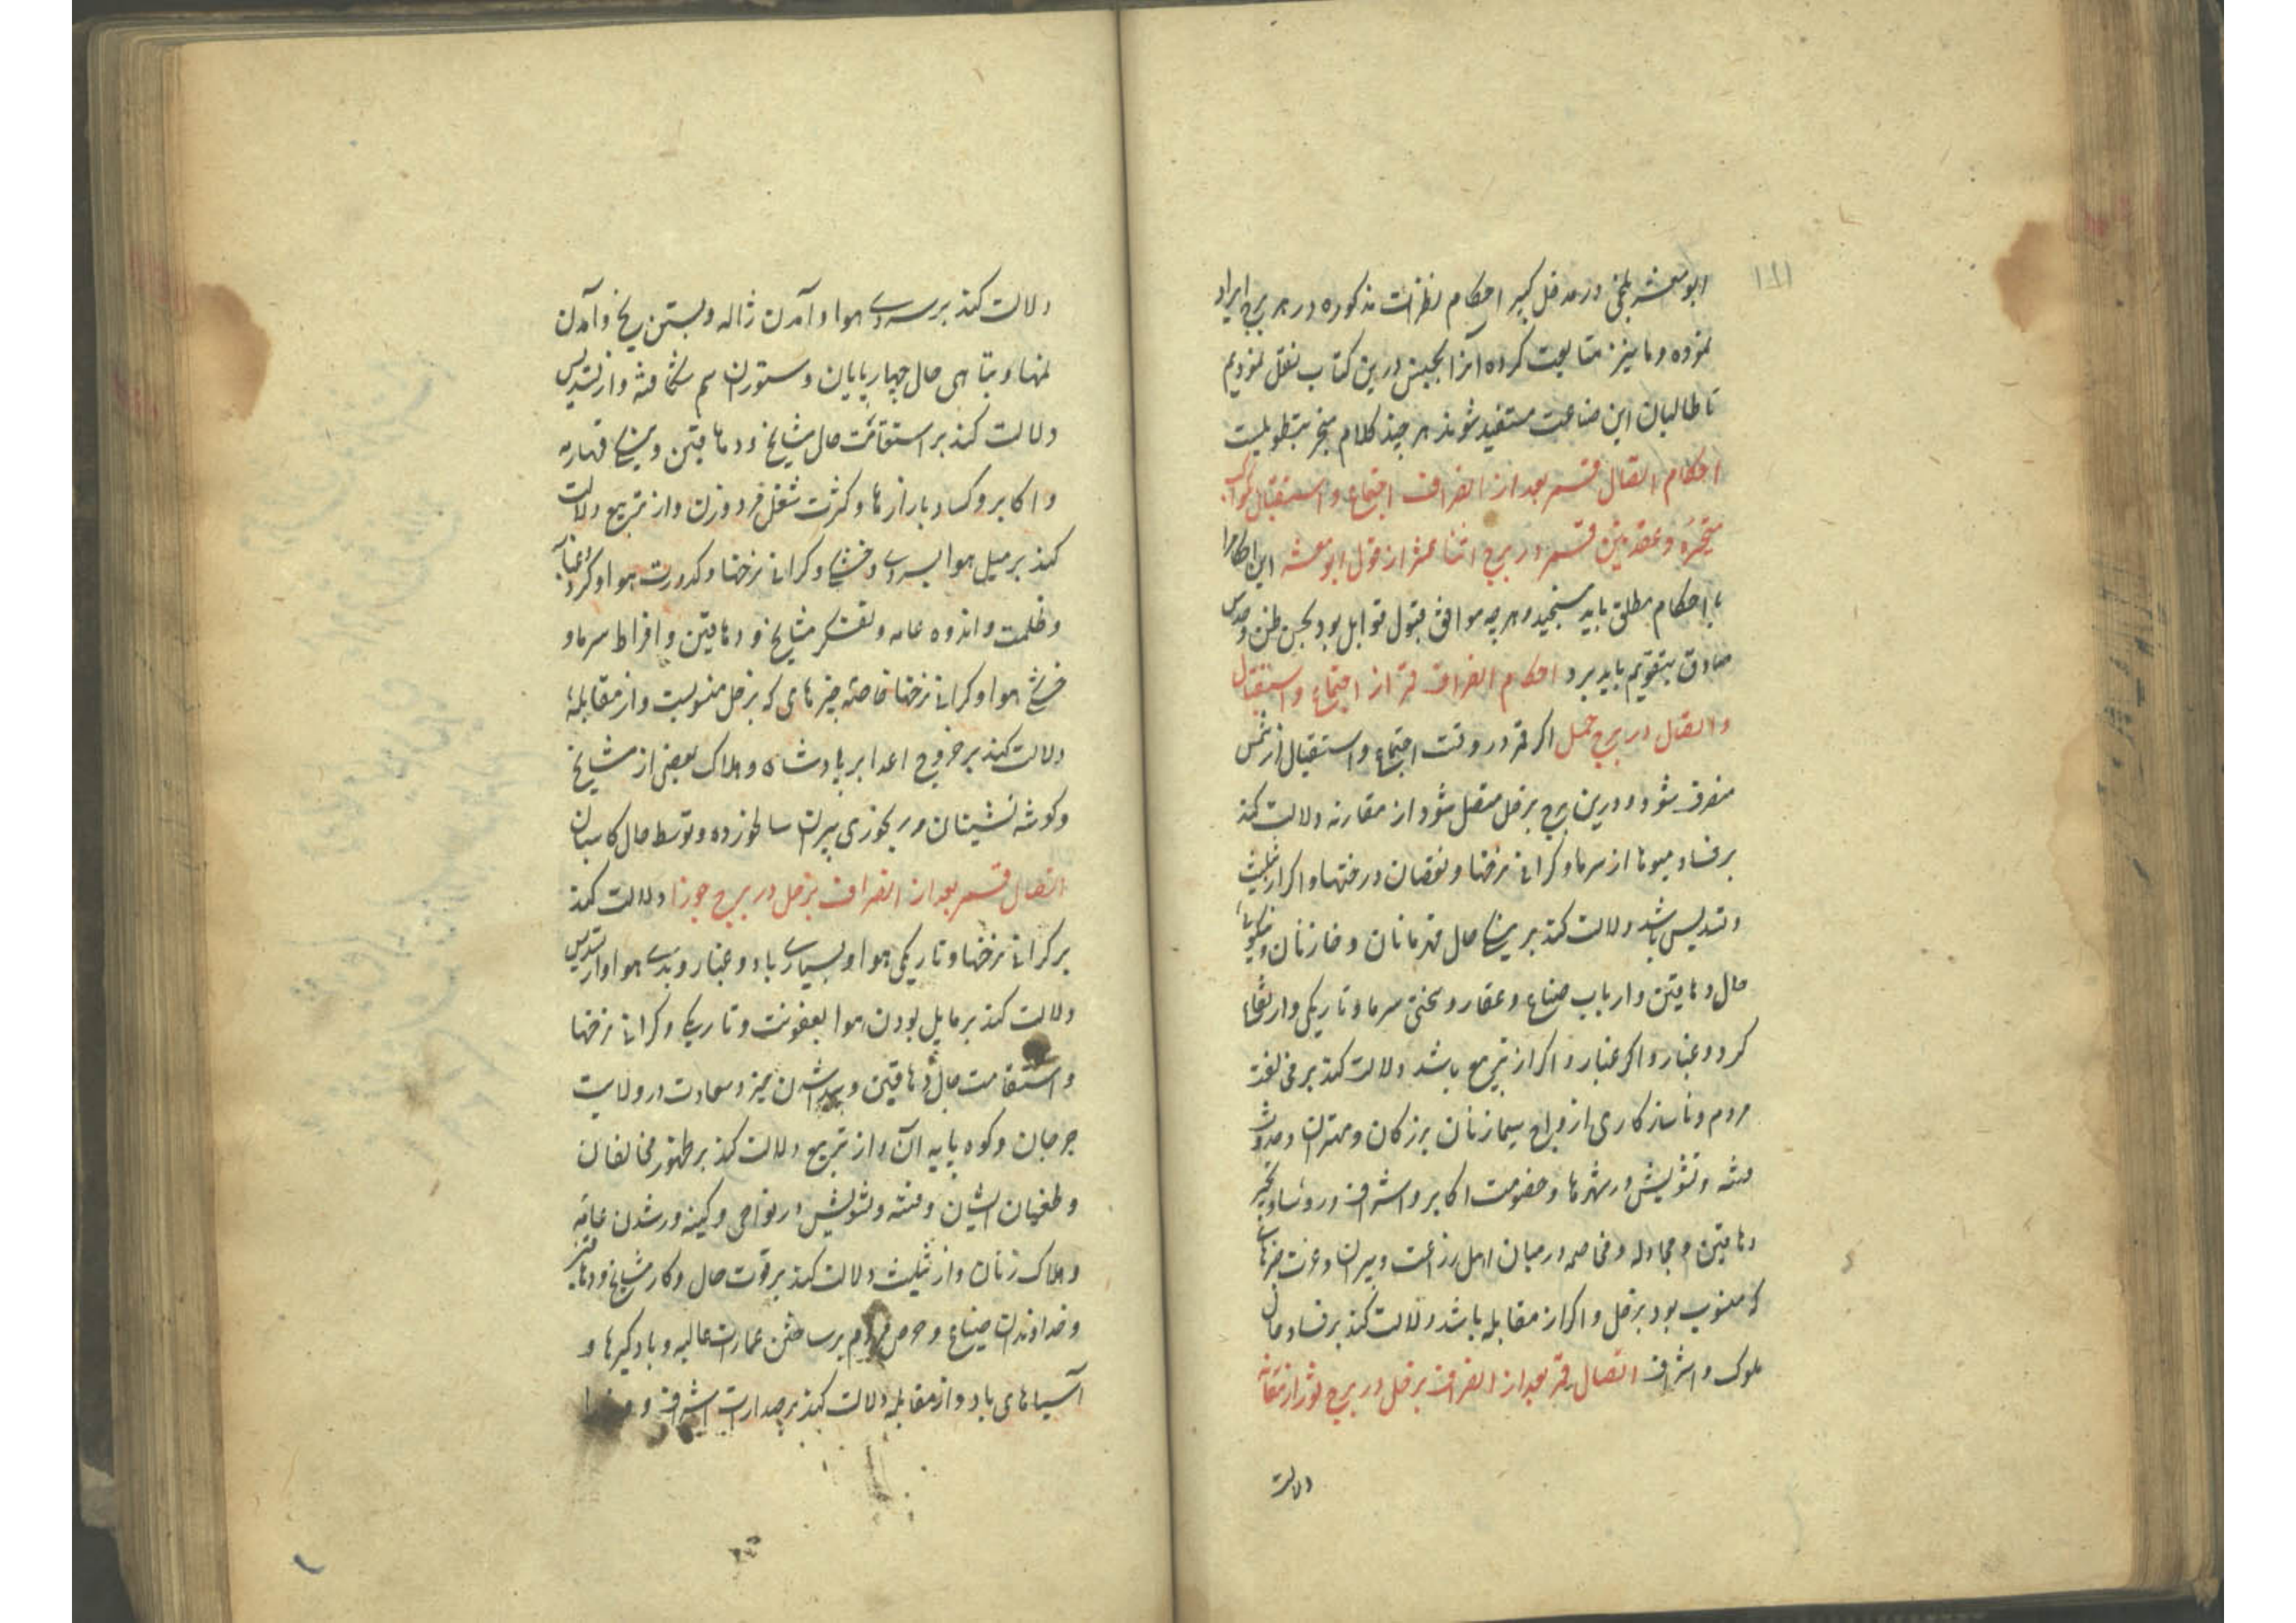 ۱۸۱
ابومعشر بلخی در مدخل کبیر احکام نظرات مذکوره در هر برج ایراد
نموده و ما نیز متابعت کرده آنرا بجنس درین کتاب نقل نمودیم
تا طالبان این صناعت مستفید شوند هر چند کلام منجر بتطویلست
احکام اتصال قمر بعد از انصراف اجتماع و استقبال کواکب
متحیره و عقدتین قمر در برج اثنا عشر از قول ابومعشر این احکام را
با احکام مطلق باید سنجید و هر چه موافق قبول قوابل بود بحسن ظن و حدس
صادق بتقویم باید برد احکام انصراف قمر از اجتماع و استقبال
و اتصال در برج حمل اگر قمر در وقت اجتماع و استقبال از شمس
منصرف شود و درین برج بزحل متصل شود از مقارنه دلالت کند
بر فساد میوها از سرما و کرانی نرخها و نقصان درختها و اکر از تثلیث
و تسدیس باشد دلالت کند بر نیکی حال قهرمانان و خازنان و نیکویی
حال دهاقین و ارباب ضیاع و عقار و سختی سرما و تاریکی و ارتفاع
کرد و غبار و اکر غبار و اکر از تربیع باشد دلالت کند بر مخالفت
مردم و ناسازکاری ازواج سیما زنان بزرکان و مهتران و حدوث
فتنه و تشویش در شهرها و خصومت اکابر و اشراف و رؤسا و تحیر
دهاقین و مجادله و مخاصمه در میان اهل زراعت و پیران و عزت چیزهایی
که منسوب بود بزحل و اکر از مقابله باشد دلالت کند بر فساد حال
ملوک و اشراف اتصال قمر بعد از انصراف بزحل در برج ثور از مقارنه
دلالت
دلالت کند بر سردی هوا و آمدن ژاله و بستن یخ و آمدن
نمها و تباهی حال چهارپایان و ستوران سم شکافته و از تسدیس
دلالت کند بر استقامت حال مشایخ و دهاقین و نیکی قهارمه
و اکابر و کساد بازارها و کثرت شغل مرد و زن و از تربیع دلالت
کند بر میل هوا بسردی و خشکی و کرانی نرخها و کدورت هوا و کرد و غبار
و ظلمت و اندوه عامه و تفکر مشایخ و دهاقین و افراط سرما و
خشکی هوا و کرانی نرخها خاصه چیزهای که بزحل منسوبست و از مقابله
دلالت کند بر خروج اعدا بر پادشاه و هلاک بعضی از مشایخ
و کوشه نشینان و رنجوری پیران سالخورده و توسط حال کاسبان
اتصال قمر بعد از انصراف بزحل در برج جوزا دلالت کند
بر کرانی نرخها و تاریکی هوا و بسیاری باد و غبار و بدی هوا و از تسدیس
دلالت کند بر مایل بودن هوا بعفونت و تاریکی و کرانی نرخها
و استقامت حال دهاقین و پیدا شدن خیر و سعادت در ولایت
جرجان و کوه پایه آن و از تربیع دلالت کند بر ظهور مخالفان
و طغیان ایشان و فتنه و تشویش در نواحی و کینه ور شدن عامه
و هلاک زنان و از تثلیث دلالت کند بر قوت حال و کار مشایخ و دهاقین
و خداوندان ضیاع و حرص مردم بر ساختن عمارت عالیه و بادکیرها و
آسیاهای باد و از مقابله دلالت کند بر صدارت اشراف و